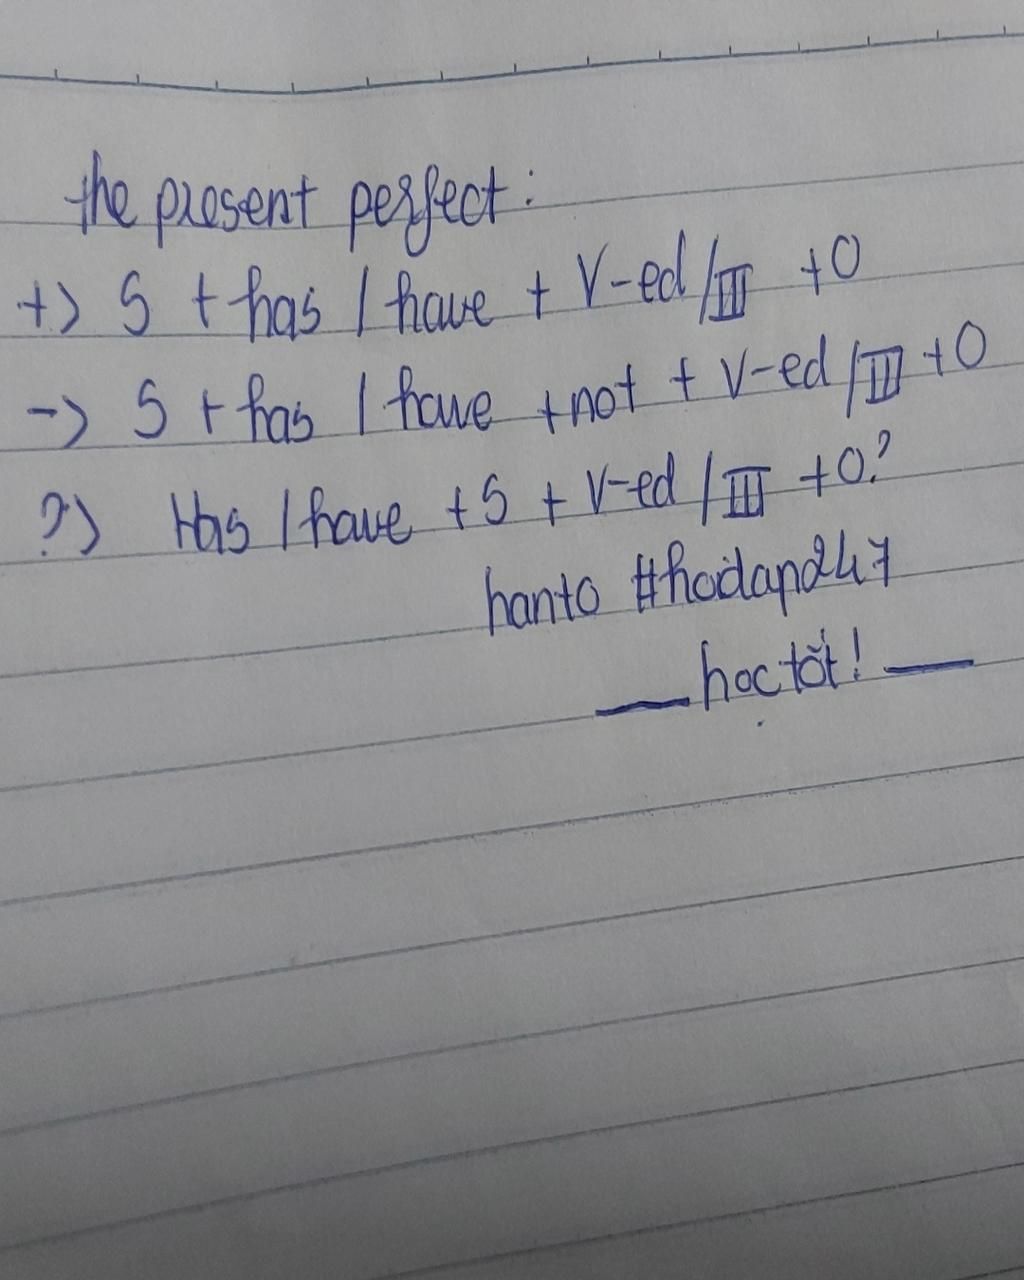 the present perfect:
+) S + has / have + V-ed / III + O
-) S + has / have + not + V-ed / III + O
?) Has / have + S + V-ed / III + O?
hanto #hoidap247
học tốt!